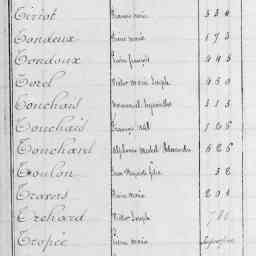 Tirrot Pierre Marie 534
Tondeux Pierre Marie 593
Tondoux Pierre François 445
Torel Victor Marie Joseph 450
Touchais Emmanuel 515
Touchais François 126
Touchard Alphonse Michel Alexandre 626
Toulon Jean Marie fils 32
Travers Pierre Marie 201
Trehard Victor Joseph 780
Tropée Pierre Marie